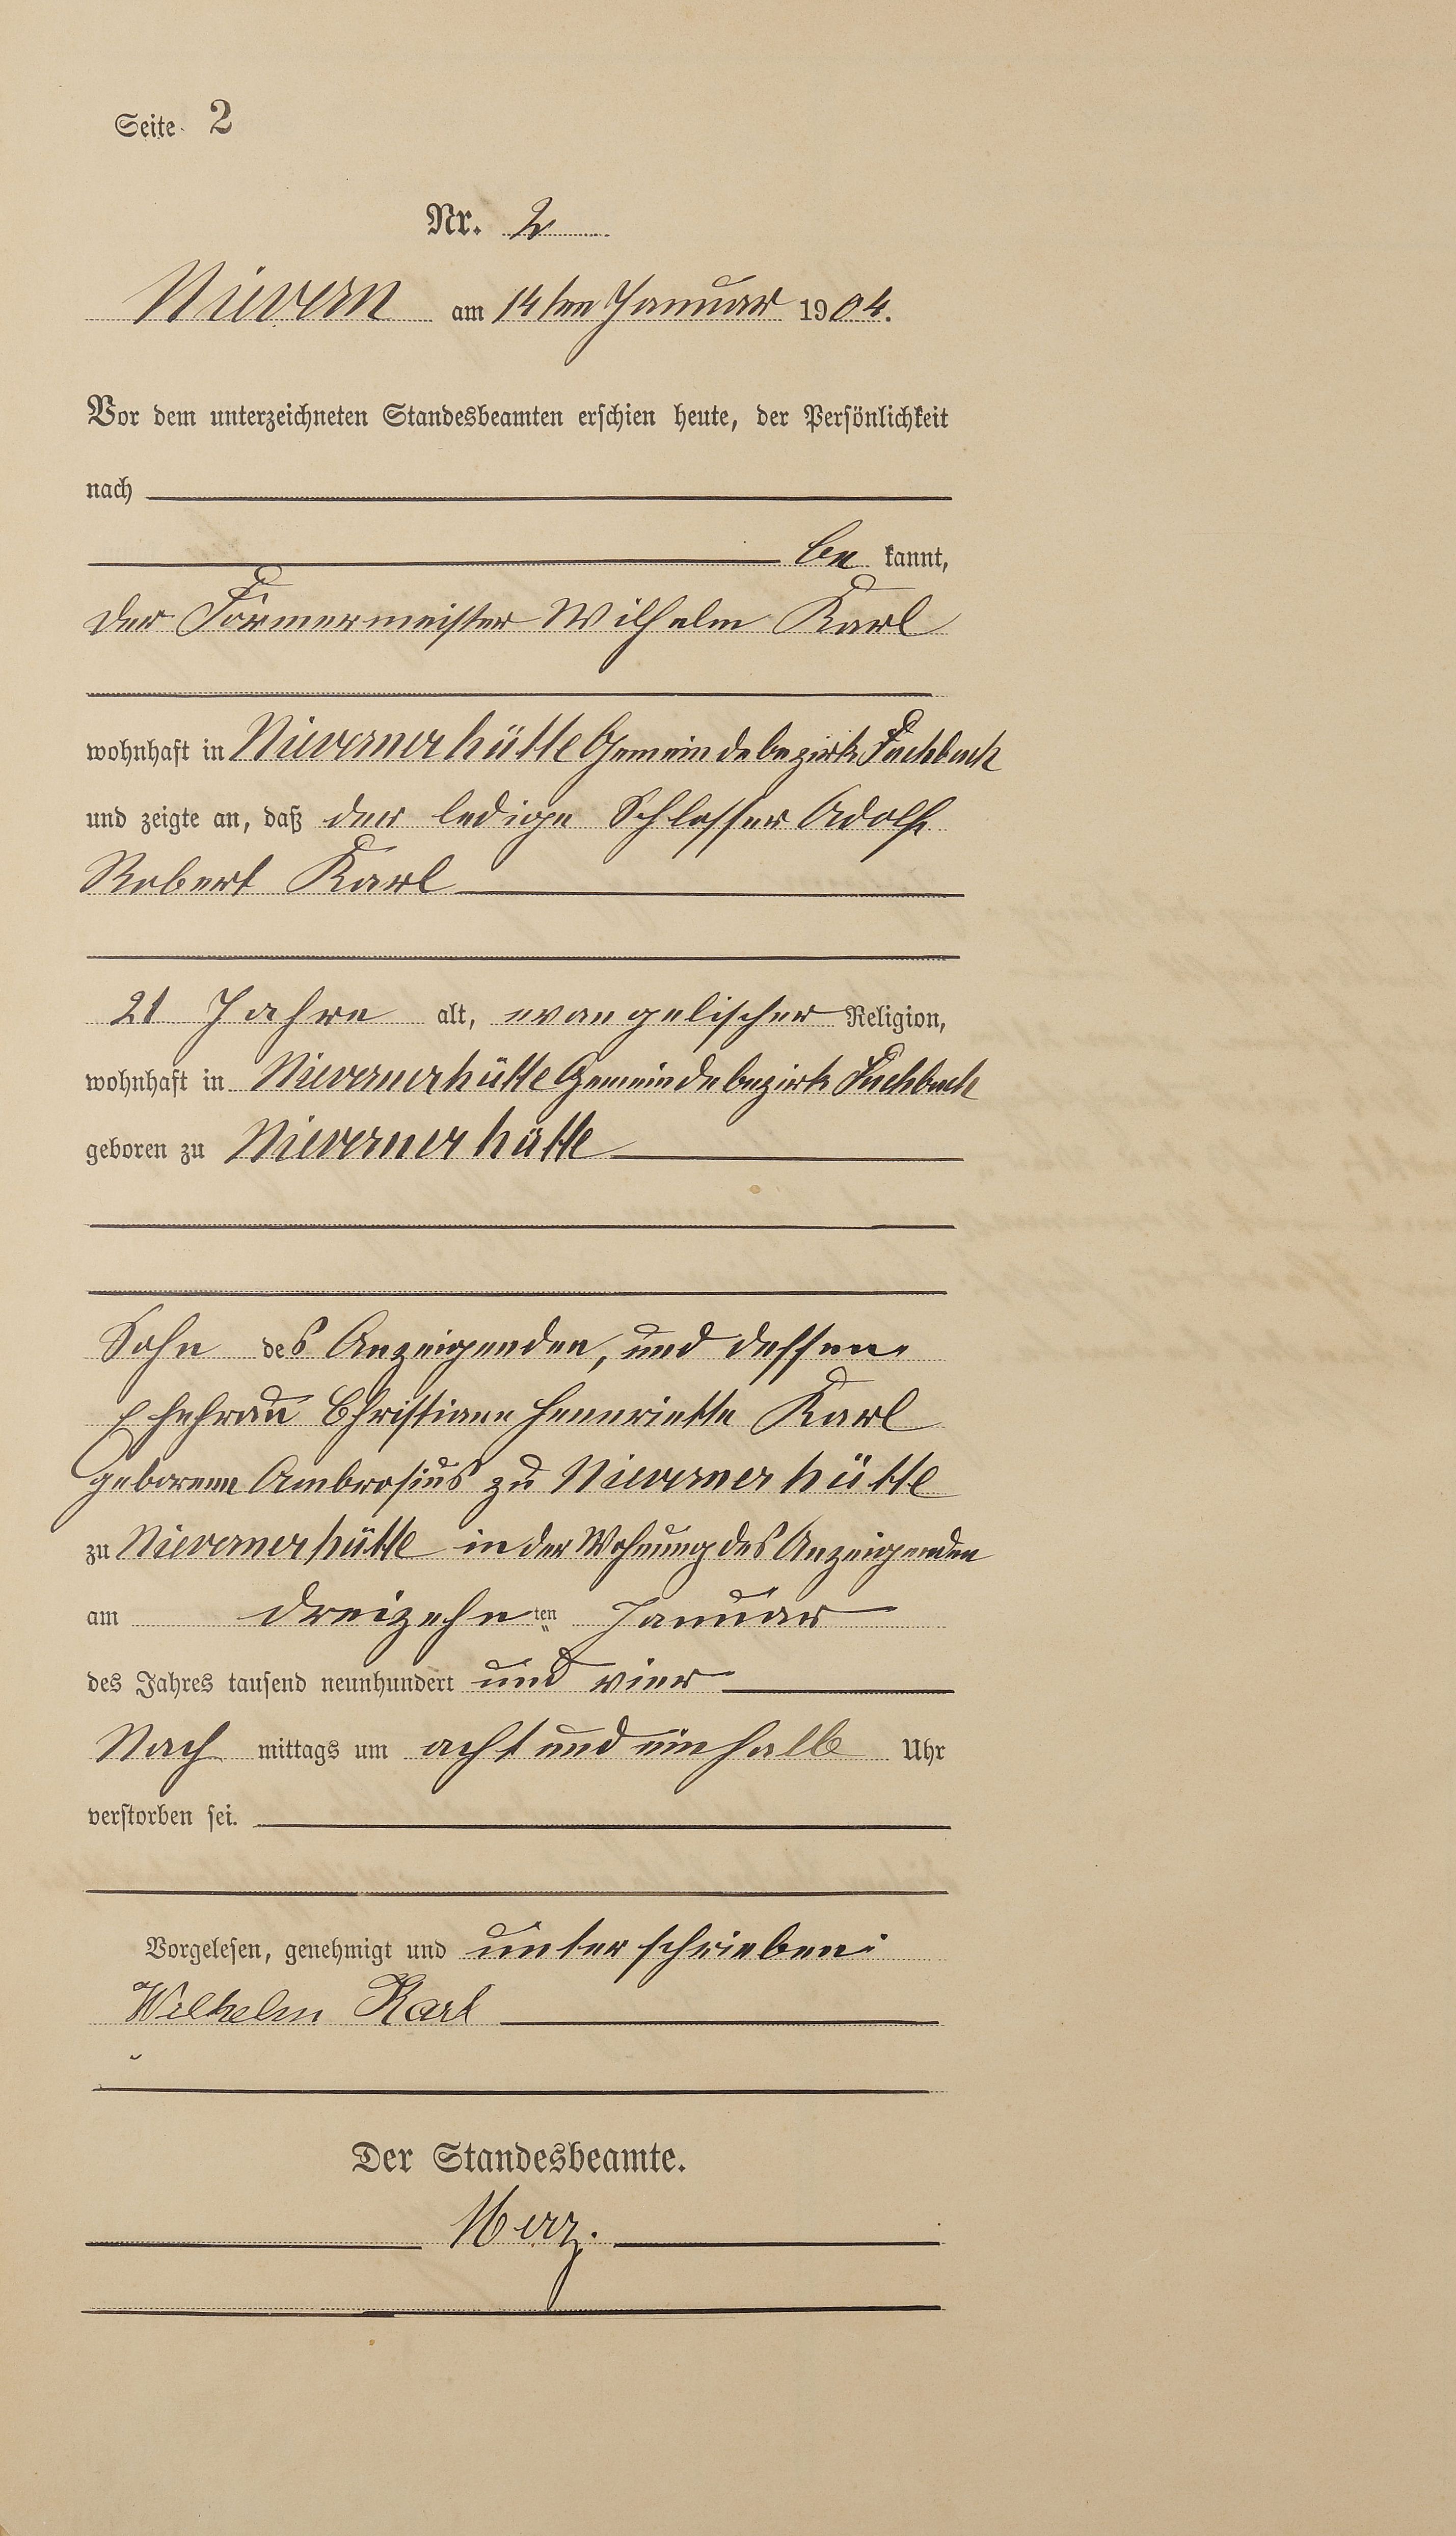 Seite 2
Nr. 2
Nievern am 14ten Januar 1904.
Vor dem unterzeichneten Standesbeamten erschien heute, der Persönlichkeit
nach
be kannt,
der Formermeister Wilhelm Karl
wohnhaft in Nievernerhütte Gemeindebezirk Fachbach
und zeigte an, daß der ledige Schlosser Adolf
Robert Karl
21 Jahre alt, evangelischer Religion,
wohnhaft in Nievernerhütte Gemeindebezirk Fachbach
geboren zu Nievernerhütte
Sohn des Anzeigenden, und dessen
Ehefrau Christiane Henriette Karl
geborene Ambrosius zu Nievernerhütte
zu Nievernerhütte in der Wohnung des Anzeigenden
am dreizehnten Januar
des Jahres tausend neunhundert und vier
Nach mittags um acht und ein halb Uhr
verstorben sei.
Vorgelesen, genehmigt und unterschrieben:
Wilhelm Karl
Der Standesbeamte.
Merz.